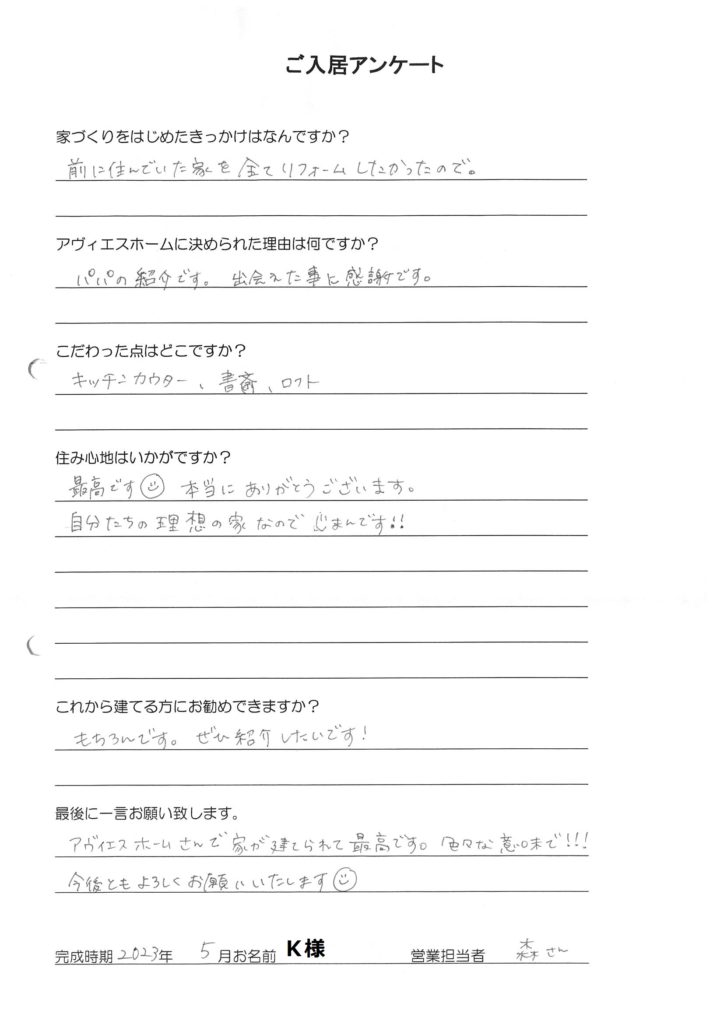 ご入居アンケート
家づくりをはじめたきっかけはなんですか？
前に住んでいた家を全てリフォームしたかったので。
アヴィエスホームに決められた理由は何ですか？
パパの紹介です。 出会えた事に感謝です。
こだわった点はどこですか？
キッチンカウター、書斎、ロフト
住み心地はいかがですか？
最高です☺ 本当にありがとうございます。
自分たちの理想の家なので じまんです!!
これから建てる方にお勧めできますか？
もちろんです。 ぜひ紹介したいです!
最後に一言お願い致します。
アヴィエスホームさんで家が建てられて最高です。色々な意味で!!!
今後ともよろしくお願いいたします☺
完成時期 2023年 5月お名前 K様 営業担当者 森さん